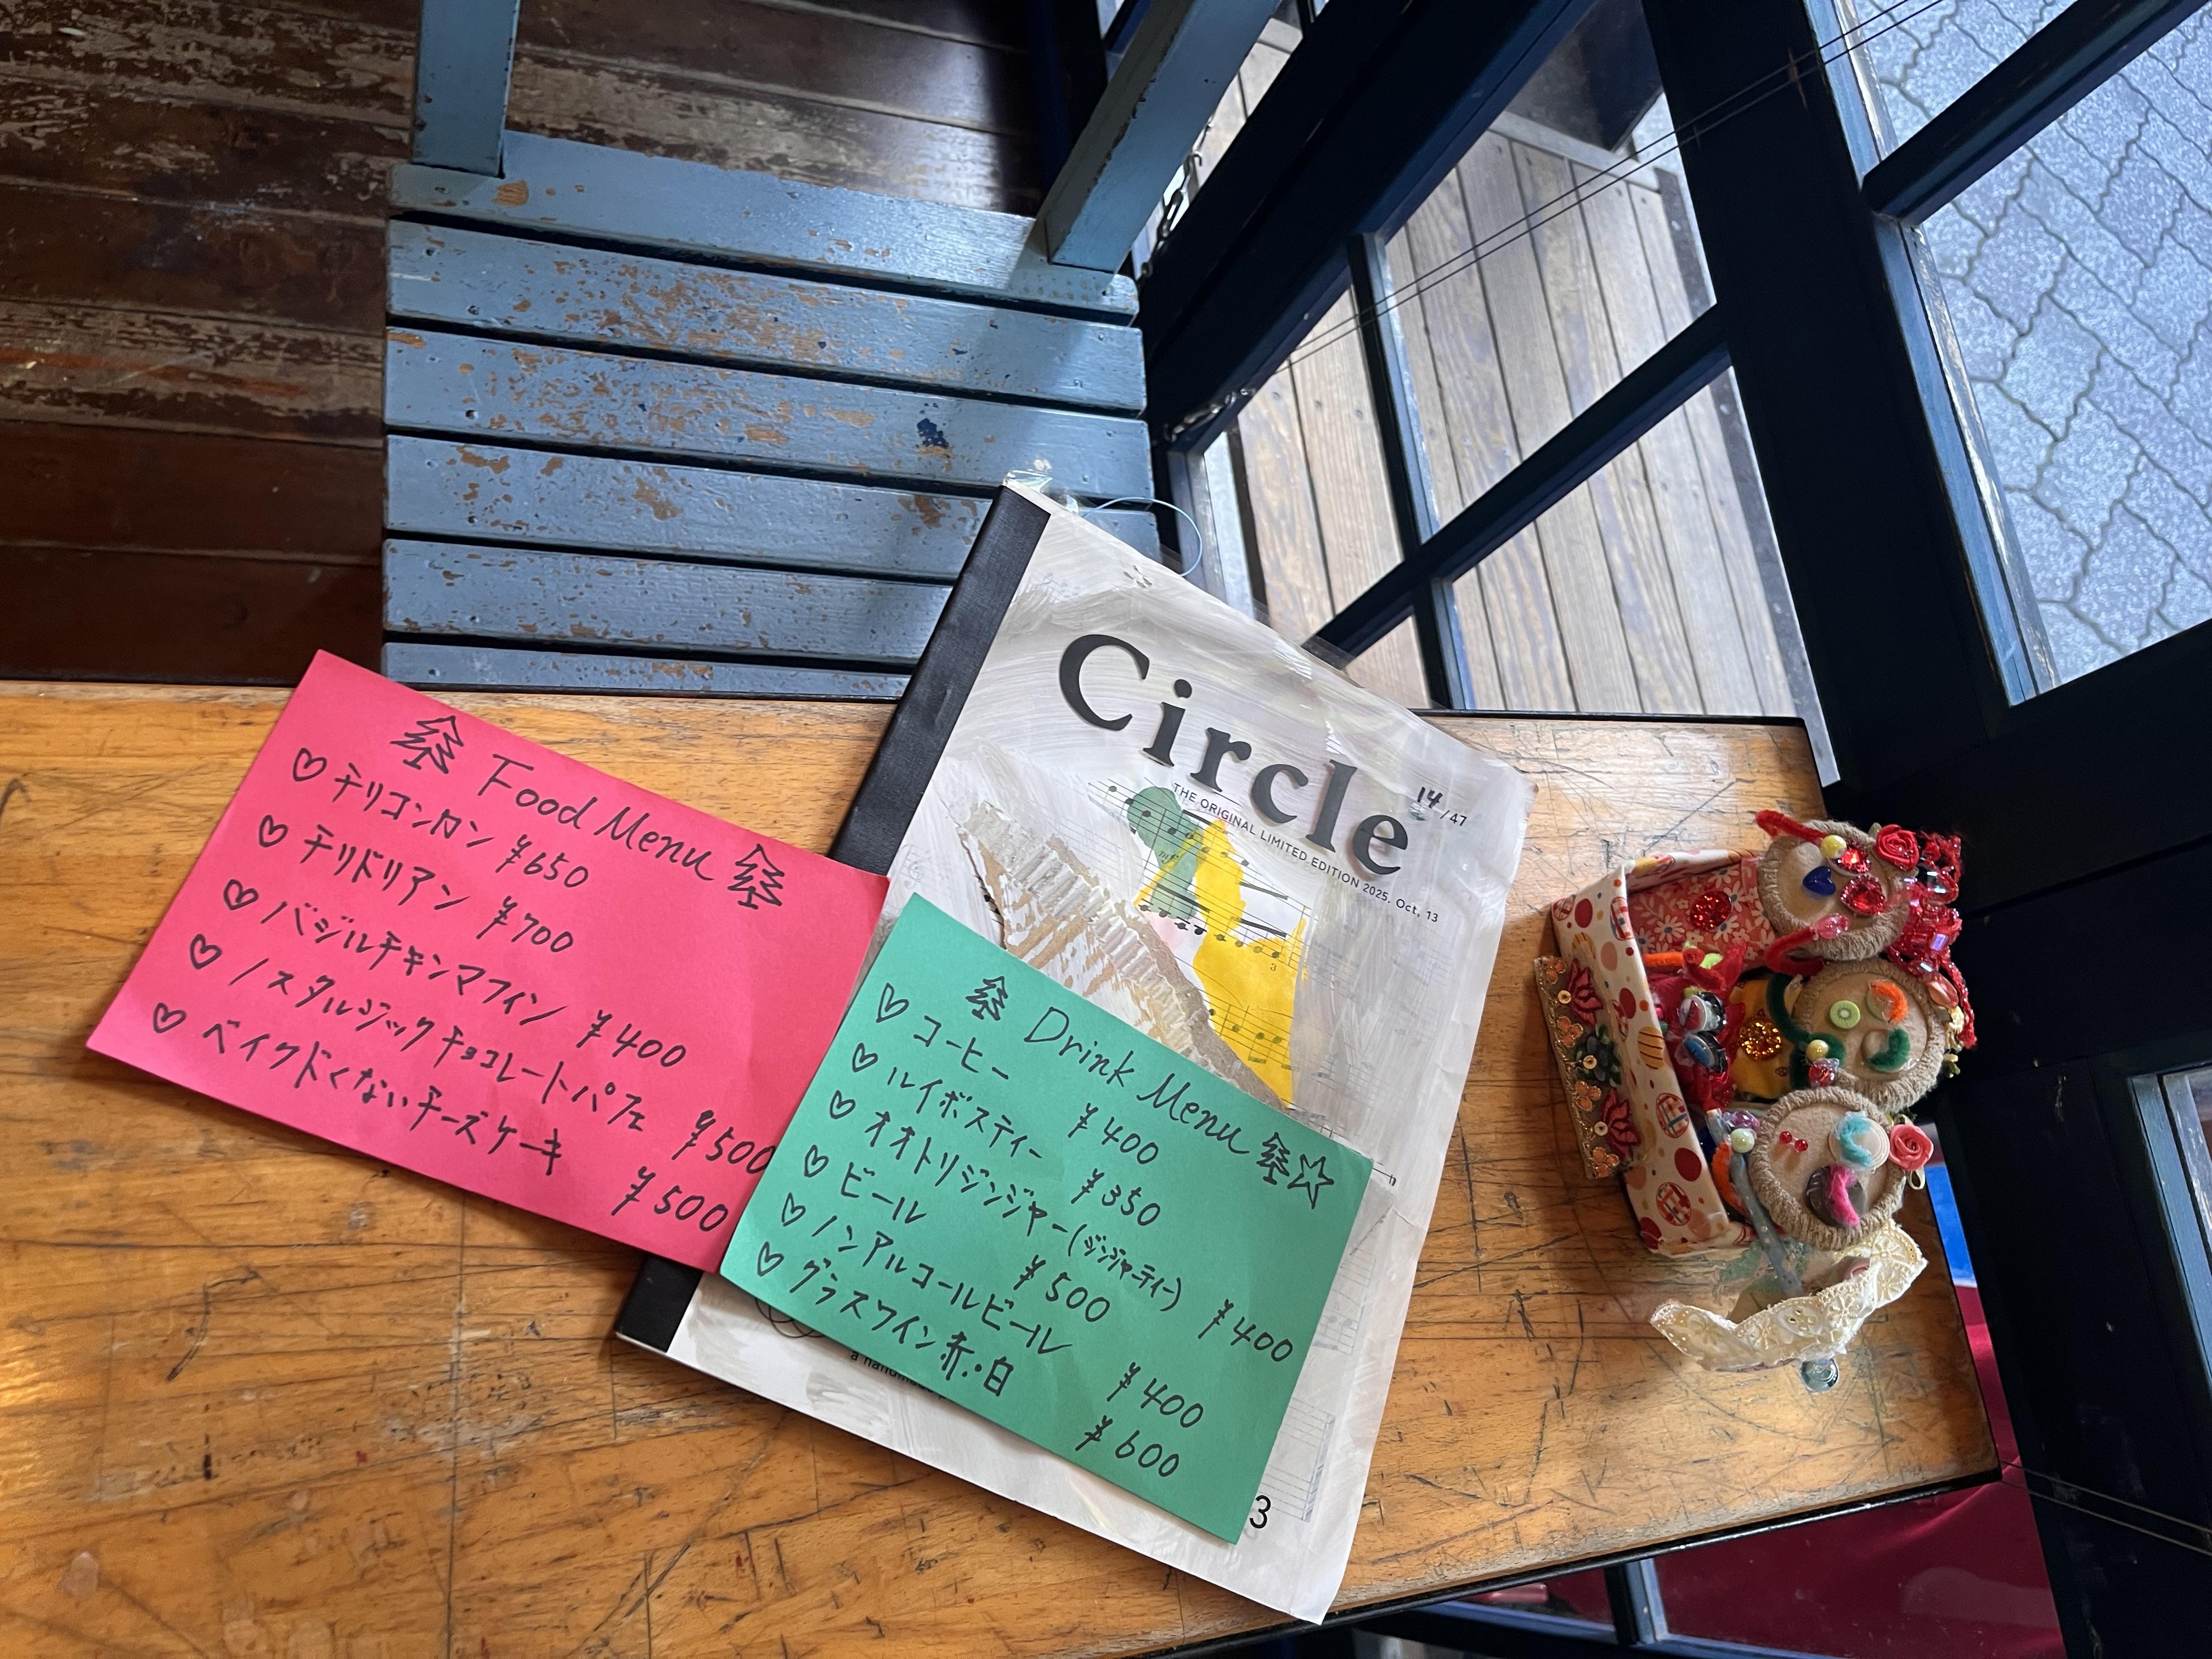 Food Menu
♡ チリコンカン ¥650
♡ チリドリアン ¥700
♡ バジルチキンマフィン ¥400
♡ ノスタルジックチョコレートパフェ ¥500
♡ ベイクドくないチーズケーキ ¥500
Circle
14/47
THE ORIGINAL LIMITED EDITION 2025. Oct, 13
Drink Menu ☆
♡ コーヒー ¥400
♡ ルイボスティー ¥350
♡ オオトリジンジャー(ジンジャーティー) ¥400
♡ ビール ¥500
♡ ノンアルコールビール ¥400
♡ グラスワイン赤・白 ¥600
3